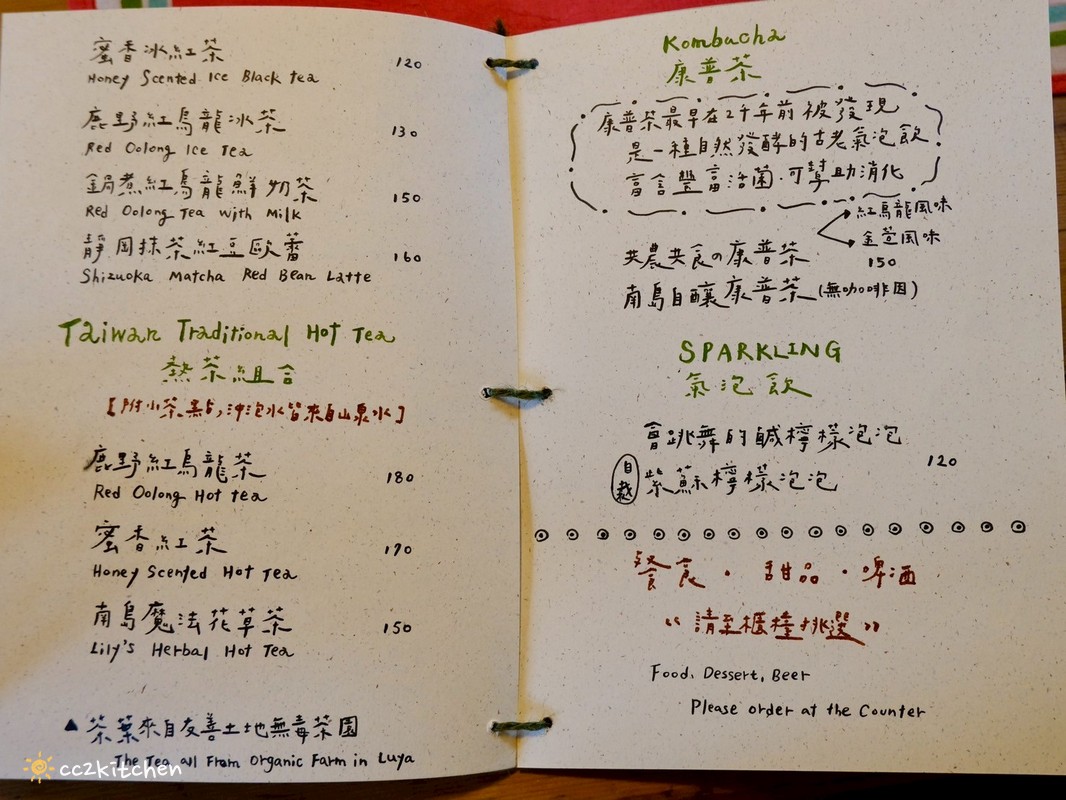 蜜香冰紅茶 120
Honey Scented Ice Black tea
鹿野紅烏龍冰茶 130
Red Oolong Ice Tea
鍋煮紅烏龍鮮奶茶 150
Red Oolong Tea with Milk
靜岡抹茶紅豆歐蕾 160
Shizuoka Matcha Red Bean Latte
Taiwan Traditional Hot Tea
熱茶組合
【附小茶點,沖泡水皆來自山泉水】
鹿野紅烏龍茶 180
Red Oolong Hot tea
蜜香紅茶 170
Honey Scented Hot Tea
南島魔法花草茶 150
Lily's Herbal Hot Tea
▲茶葉來自友善土地無毒茶園
The Tea all From Organic Farm in Luya
cc2kitchen
Kombucha
康普茶
康普茶最早在2千年前被發現
是一種自然發酵的古老氣泡飲
富含豐富活菌.可幫助消化
紅烏龍風味
共農共食の康普茶 金萱風味
150
南島自釀康普茶(無咖啡因)
SPARKLING
氣泡飲
會跳舞的鹹檸檬泡泡
120
自栽 紫蘇檸檬泡泡
餐食・甜品・啤酒
“請至櫃檯挑選”
Food, Dessert, Beer
Please order at the Counter